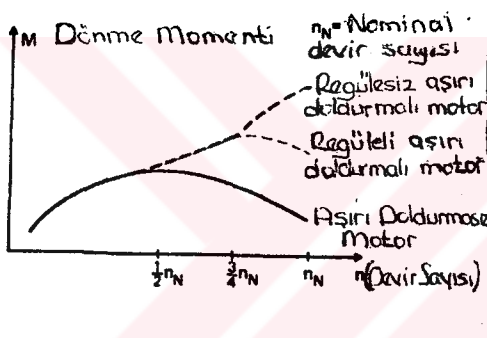 M Dönme Momenti
n_N = Nominal
devir sayısı
Regülesiz aşırı
doldurmalı motor
Regüleli aşırı
doldurmalı motor
Aşırı Doldurmasız
Motor
½n_N ¾n_N n_N n(Devir Sayısı)